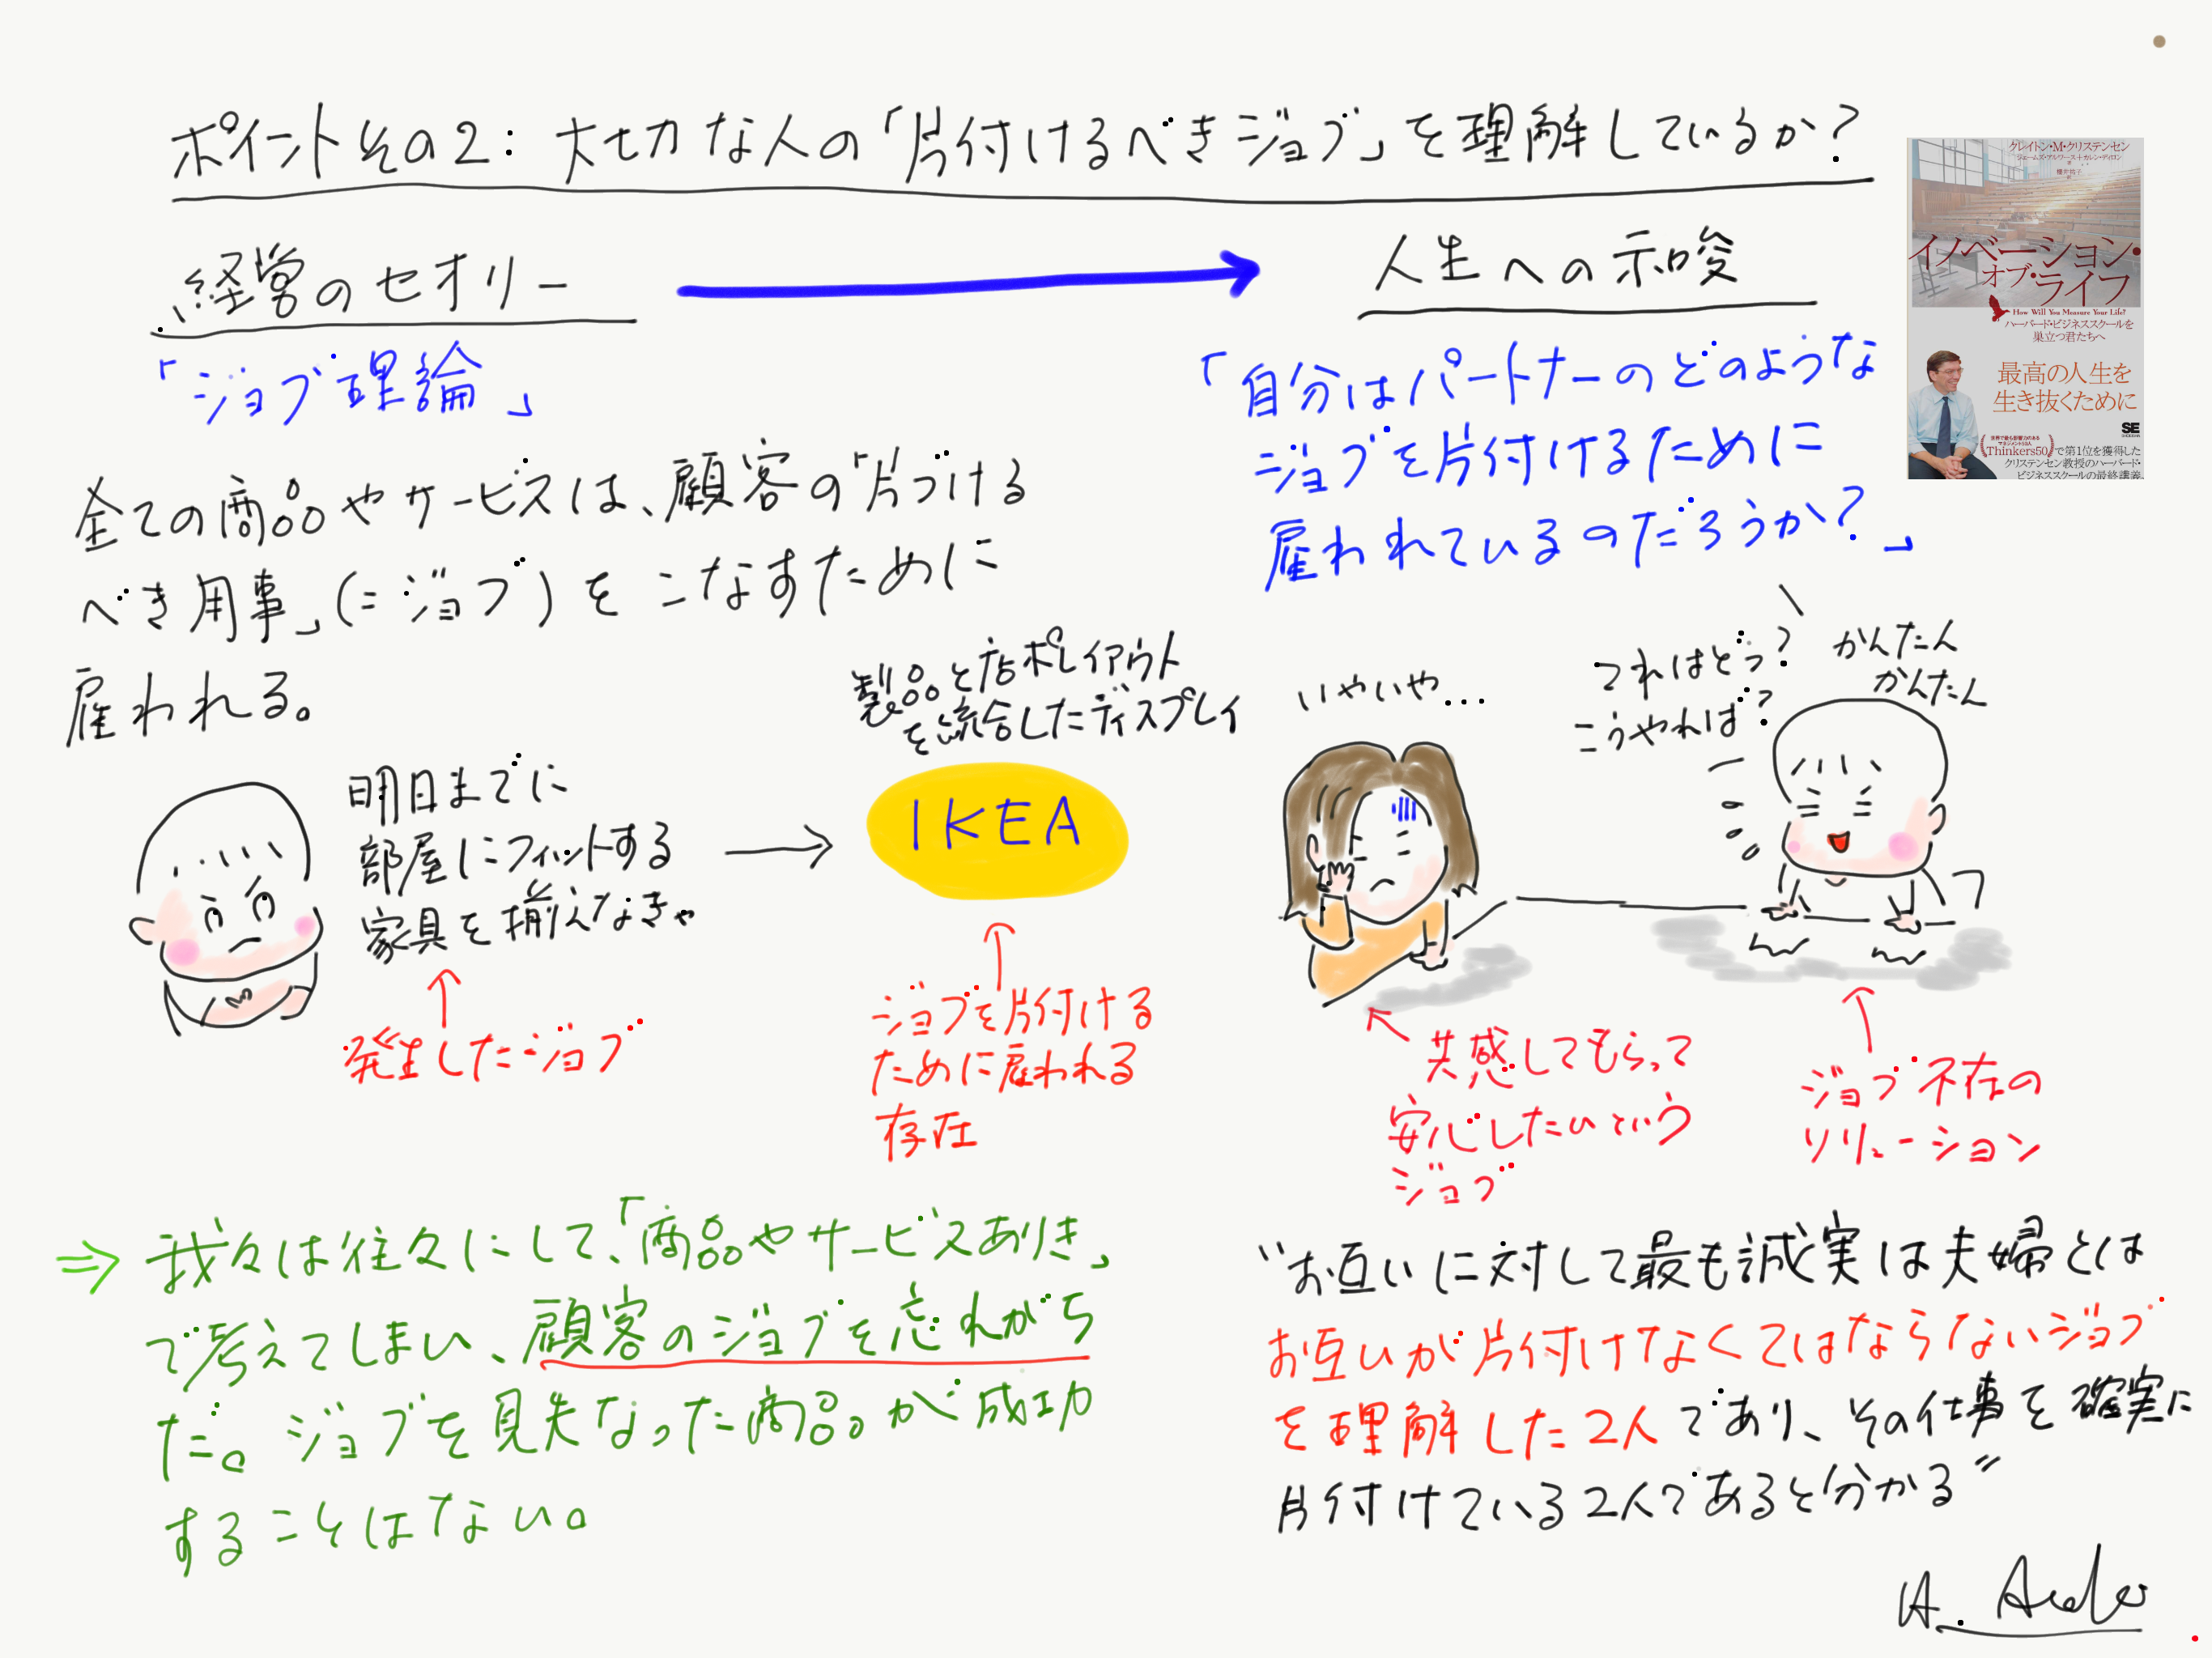 ポイントその2：大切な人の「片付けるべきジョブ」を理解しているか？
経営のセオリー
人生への示唆
「ジョブ理論」
全ての商品やサービスは、顧客の「片づける
べき用事」(=ジョブ)をこなすために
雇われる。
明日までに
部屋にフィットする
家具を揃えなきゃ
発生したジョブ
製品と店舗レイアウト
を統合したディスプレイ
IKEA
ジョブを片付ける
ために雇われる
存在
⇒我々は往々にして、「商品やサービスありき」
で考えてしまい、顧客のジョブを忘れがち
だ。ジョブを見失なった商品が成功
することはない。
「自分はパートナーのどのような
ジョブを片付けるために
雇われているのだろうか？」
いやいや…
これはどう？
こうやれば？
かんたん
かんたん
共感してもらって
安心したいという
ジョブ
ジョブ不在の
ソリューション
"お互いに対して最も誠実は夫婦とは
お互いが片付けなくてはならないジョブ
を理解した2人であり、その仕事を確実に
片付けている2人であると分かる"
クレイトン・M・クリステンセン
ジェームズ・アルワース＋カレン・ディロン
イノベーション・
オブ・ライフ
How Will You Measure Your Life?
ハーバード・ビジネススクールを
巣立つ君たちへ
最高の人生を
生き抜くために
SE
Thinkers50で第1位を獲得した
クリステンセン教授のハーバード・
ビジネススクールの最終講義